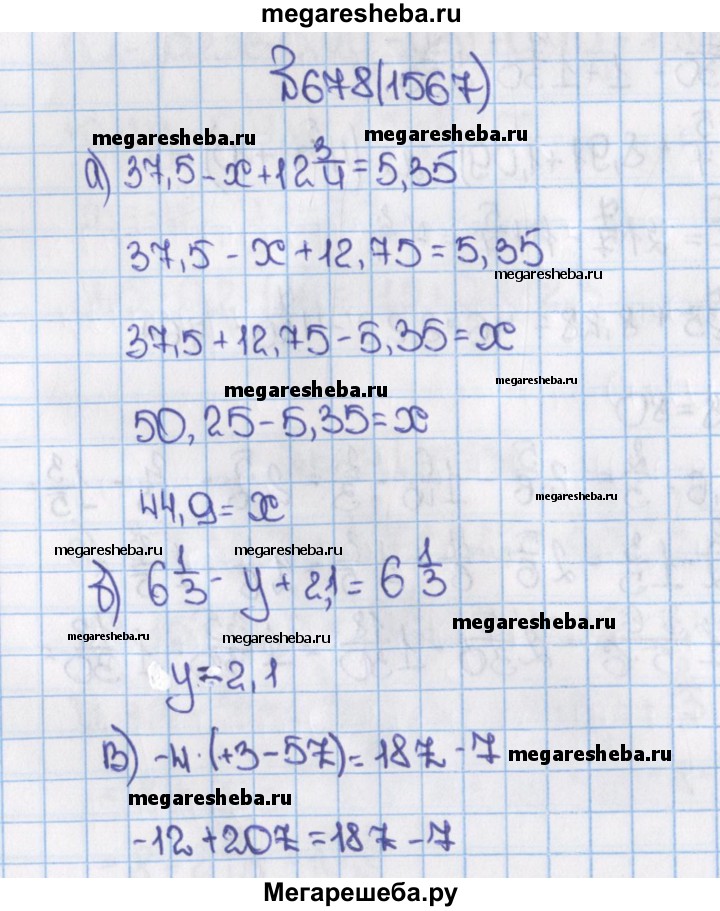 megaresheba.ru
№678(1567)
megaresheba.ru megaresheba.ru
а) 37,5 - x + 12 3/4 = 5,35
37,5 - x + 12,75 = 5,35
megaresheba.ru
37,5 + 12,75 - 5,35 = x
megaresheba.ru megaresheba.ru
50,25 - 5,35 = x
44,9 = x
megaresheba.ru
megaresheba.ru megaresheba.ru
б) 6 1/3 - y + 2,1 = 6 1/3
megaresheba.ru
megaresheba.ru megaresheba.ru
y = 2,1
в) -4·(+3-5z) = 18z - 7
megaresheba.ru
megaresheba.ru
-12 + 20z = 18z - 7
Мегарешеба.ру